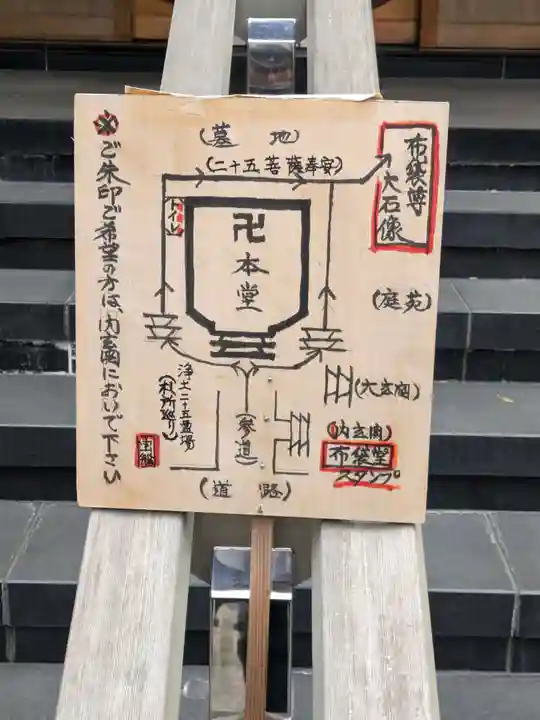 ※ご朱印ご希望の方は、内玄関においで下さい
(墓 地)
(二十五菩薩奉安)
布袋尊
大石像
トイレ
卍
本堂
(庭苑)
浄土二十五霊場
(札所巡り)
(参道)
(大玄関)
(内玄関)
布袋堂
スタンプ
(道 路)